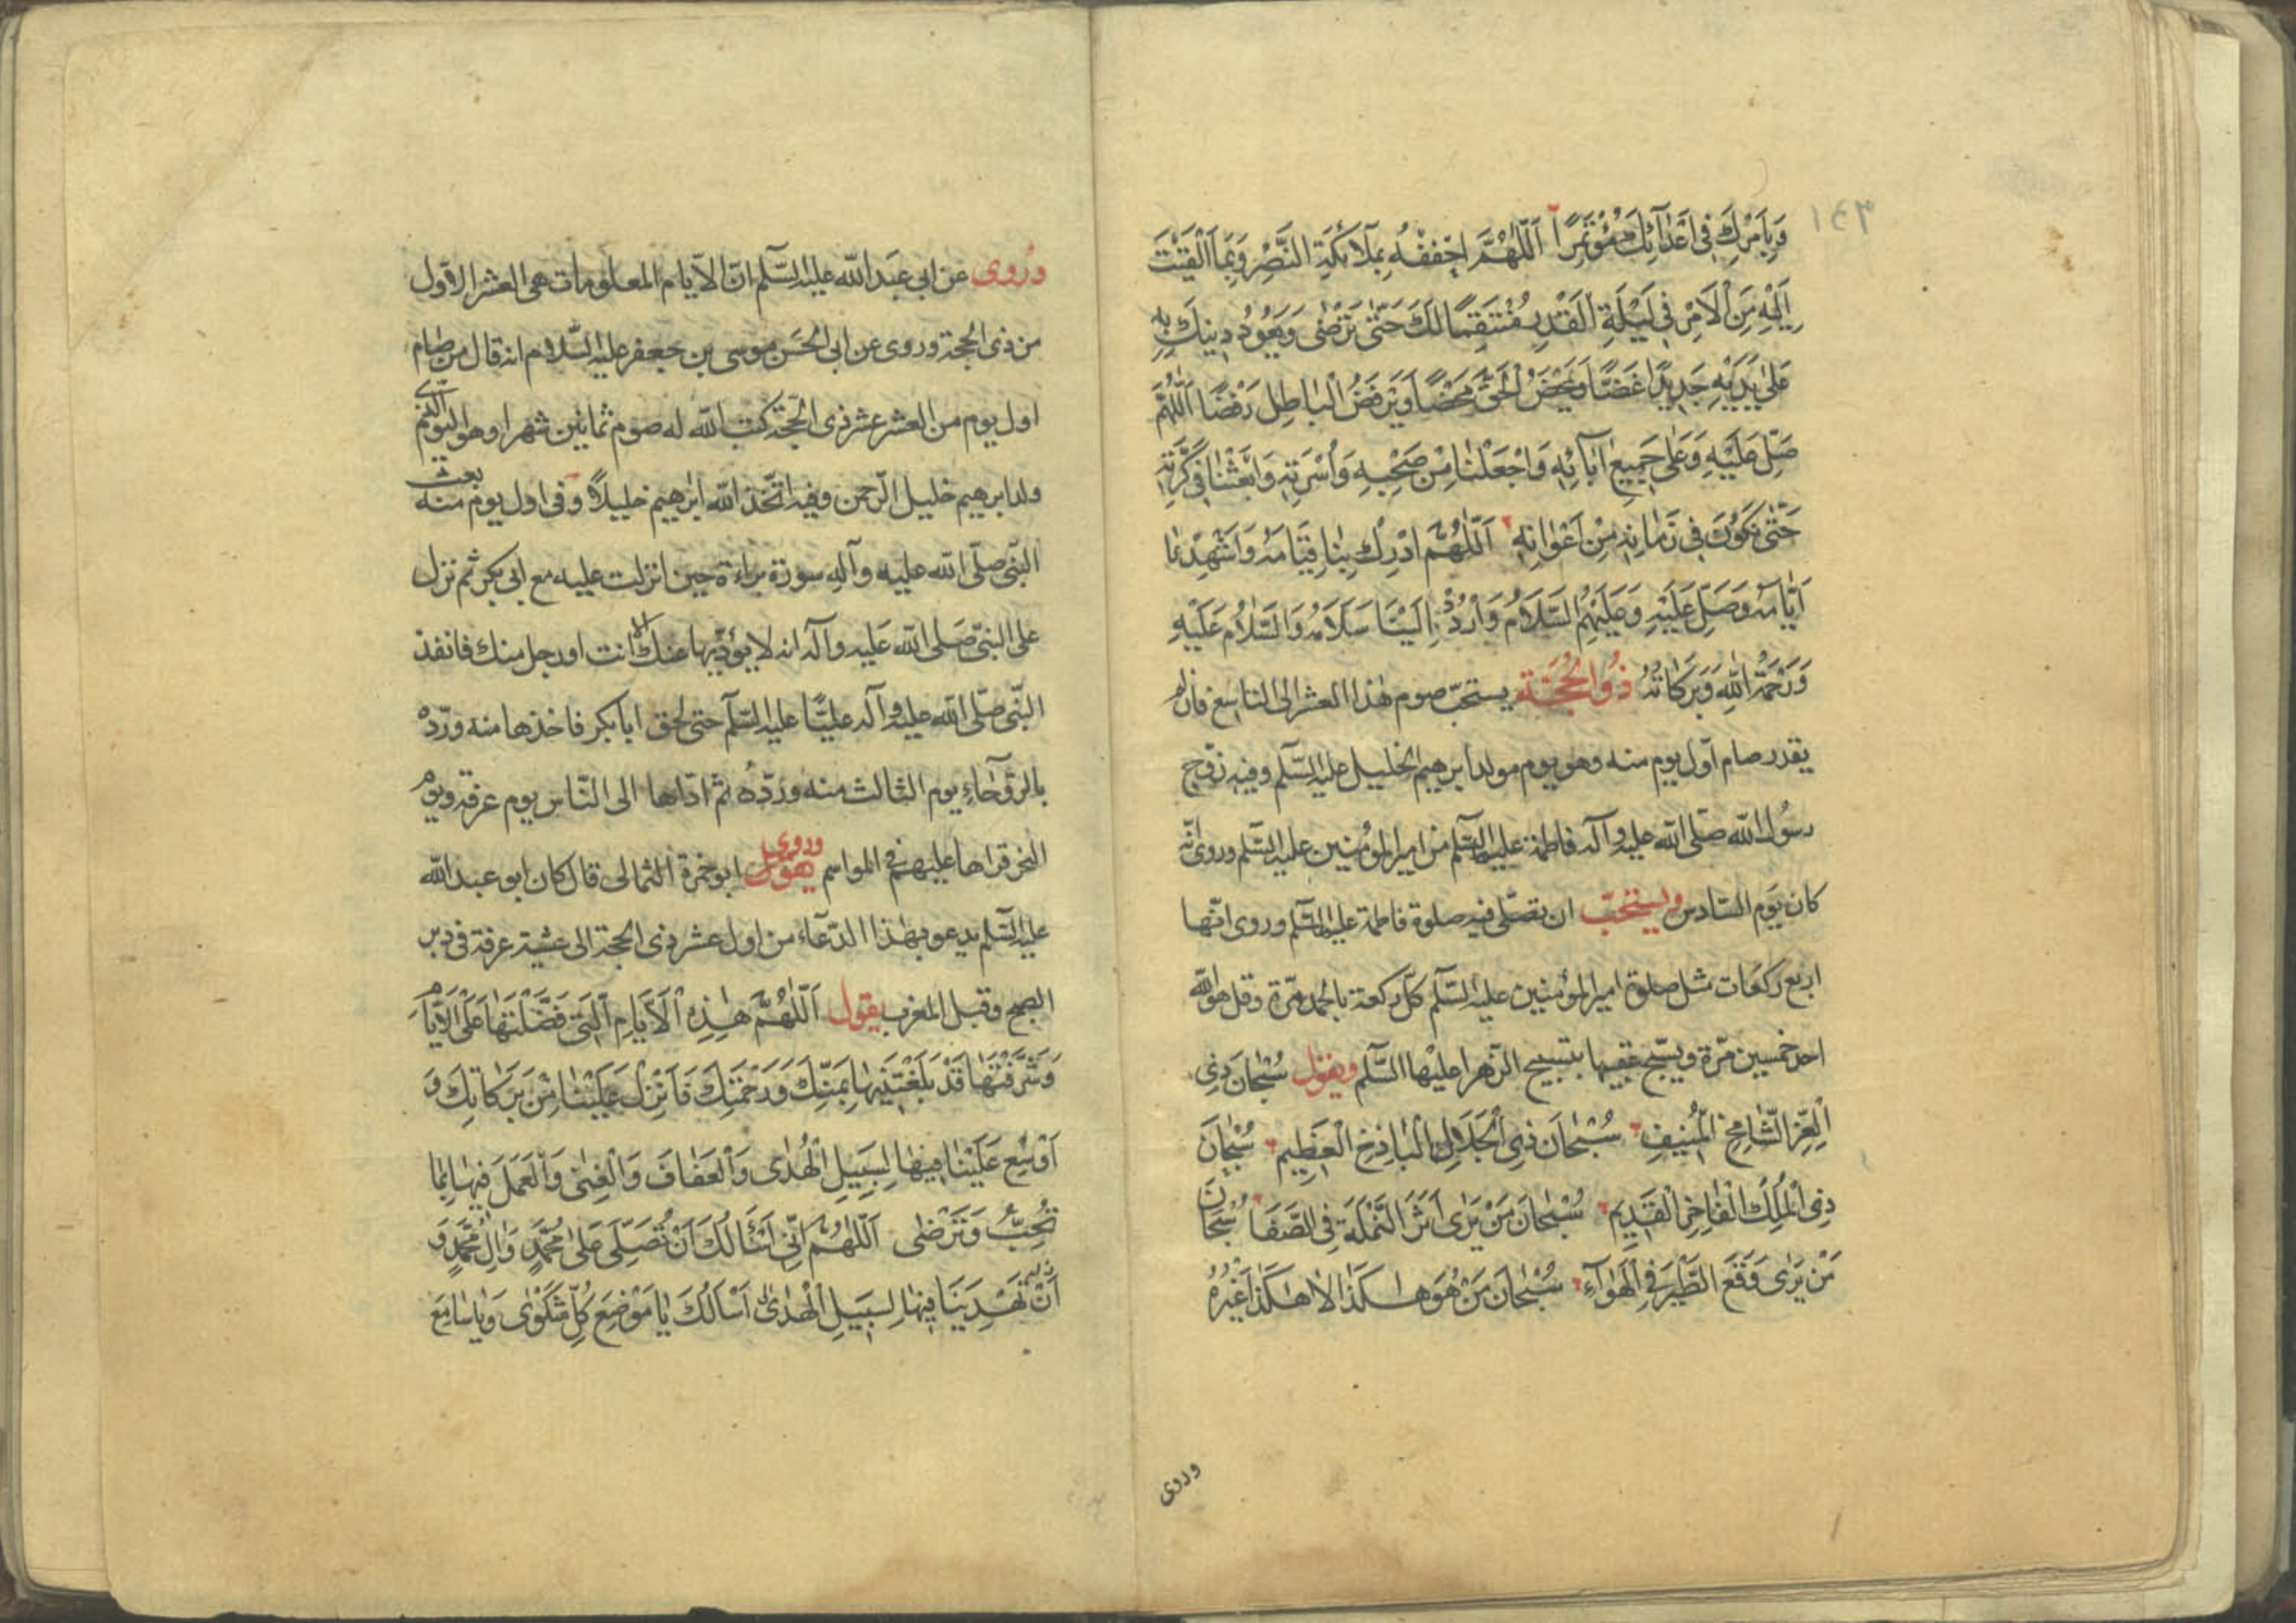 ١٤٣
وَبِاَمْرِكَ فِى اَعْدَآئِكَ مُؤْتَمِرًا اَللّٰهُمَّ احْفُفْهُ بِمَلَآئِكَةِ النَّصْرِ وَبِمَا اَلْقَيْتَ
اِلَيْهِ مِنَ الْاَمْرِ فِى لَيْلَةِ الْقَدْرِ مُنْتَقِمًا لَكَ حَتّٰى تَرْضٰى وَيَعُودُ دِينُكَ بِهِ
عَلٰى يَدَيْهِ جَدِيدًا غَضًّا وَيَمْحَضَ الْحَقَّ مَحْضًا وَيَرْفَضُ الْبَاطِلَ رَفْضًا اَللّٰهُمَّ
صَلِّ عَلَيْهِ وَعَلٰى جَمِيعِ اٰبَآئِهِ وَاجْعَلْنَا مِنْ صَحْبِهِ وَاُسْرَتِهِ وَابْعَثْنَا فِى كَرَّتِهِ
حَتّٰى نَكُونَ فِى زَمَانِهِ مِنْ اَعْوَانِهِ اَللّٰهُمَّ ادْرِكْ بِنَا قِيَامَهُ وَاَشْهِدْنَا
اَيَّامَهُ وَصَلِّ عَلَيْهِ وَعَلَيْهِمُ السَّلَامُ وَارْدُدْ اِلَيْنَا سَلَامَهُ وَالسَّلَامُ عَلَيْهِ
وَرَحْمَةُ اللهِ وَبَرَكَاتُهُ ذُو الْحُجَّةِ يستحبّ صوم هٰذا العشر الى التاسع فان لم
يقدر صام اوّل يوم منه وهو يوم مولد ابرهيم الخليل عليه السّلم وفيه زوّج
رسول الله صلّى الله عليه وآله فاطمة عليها السّلم من امير المؤمنين عليه السّلم وروى انّه
كان يوم السّادس ويستحبّ ان تصلّى فيه صلوة فاطمة عليها السّلم وروى انّها
اربع ركعات مثل صلوة امير المؤمنين عليه السّلم كلّ ركعة بالحمد مرّة وقل هو الله
احد خمسين مرّة ويسبّح عقيبها بتسبيح الزهرا عليها السّلم ويقول سُبْحَانَ ذِى
الْعِزِّ الشَّامِخِ الْمُنِيفِ سُبْحَانَ ذِى الْجَلَالِ الْبَاذِخِ الْعَظِيمِ سُبْحَانَ
ذِى الْمُلْكِ الْفَاخِرِ الْقَدِيمِ سُبْحَانَ مَنْ يَرٰى اَثَرَ النَّمْلَةِ فِى الصَّفَا سُبْحَانَ
مَنْ يَرٰى وَقْعَ الطَّيْرِ فِى الْهَوَآءِ سُبْحَانَ مَنْ هُوَ هٰكَذَا لَا هٰكَذَا غَيْرُهُ
وروى
وروى عن ابى عبد الله عليه السّلم انّ الايّام المعلومات هى العشر الاوّل
من ذى الحجة وروى عن ابى الحسن موسى بن جعفر عليه السّلام انه قال من صام
اول يوم من العشر عشر ذى الحجّة كتب الله له صوم ثمانين شهرا وهو اليوم الّذى
ولد ابرهيم خليل الرّحمن وفيه اتّخذ الله ابرهيم خليلاً وفى اول يوم منه بعث
النّبى صلّى الله عليه وآله سورة براءة حين انزلت عليه مع ابى بكر ثم نزل
على النبّى صلى الله عليه وآله انه لا يؤدّيها عنك الا انت او رجل منك فانفذ
النّبى صلّى الله عليه وآله عليًّا عليه السّلم حتى لحق ابا بكر فاخذها منه وردّه
بالرّوحاء يوم الثالث منه وردّه ثم ادّاها الى النّاس يوم عرفة ويوم
النحر قراها عليهم فى المواسم وروى يقول ابو حمزة الثمالى قال كان ابو عبد الله
عليه السّلم يدعو بهٰذا الدّعآء من اول عشر ذى الحجة الى عشية عرفة فى دبر
الصبح وقبل المغرب يقول اَللّٰهُمَّ هٰذِهِ الْاَيَّامُ الَّتِى فَضَّلْتَهَا عَلَى الْاَيَّامِ
وَشَرَّفْتَهَا قَدْ بَلَغْتَنِيهَا بِمَنِّكَ وَرَحْمَتِكَ فَاَنْزِلْ عَلَيْنَا مِنْ بَرَكَاتِكَ وَ
اَوْسِعْ عَلَيْنَا فِيهَا لِسَبِيلِ الْهُدٰى وَالْعَفَافَ وَالْغِنٰى وَالْعَمَلَ فِيهَا بِمَا
تُحِبُّ وَتَرْضٰى اَللّٰهُمَّ اِنِّى اَسْاَلُكَ اَنْ تُصَلِّىَ عَلٰى مُحَمَّدٍ وَاٰلِ مُحَمَّدٍ وَ
اَنْ تَهْدِيَنَا فِيهَا لِسَبِيلِ الْهُدٰى اَسْاَلُكَ يَا مَوْضِعَ كُلِّ شَكْوٰى وَيَا سَامِعَ